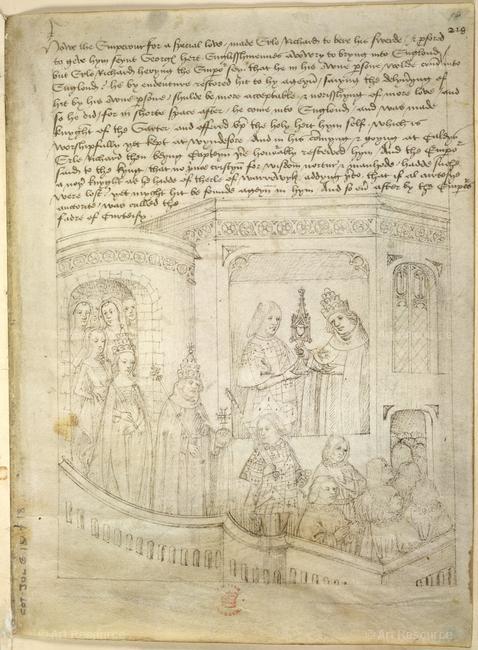 18
219
Howe the Emperour for a special love, made Erle Richard to bere his swerde, & profred
to geve hym seynt Georges hert Englisshmennes advoury to bryng into Englond,
but Erle Richard heryng the Empo seyn that he in his owne psone wolde come into
Englond, he by endenture restored hit to hy ageyn, saying the delyvering of
hit by his owne psone shulde be more acceptable & norisshyng of more love and
so he did, for in shorte space after, he come into Englond, and was made
knyght of the Garter and offred up the holy hert hym self, which is
worshipfully yet kept at Wyndesore. And in his comyng & goyng at Caleys
Erle Richard then beyng Capteyn ther honorably resceived hym. And the Empor
said to the kyng that no prince cristyn for wisdom nortur & manhode, hadde suche
a nother knyght as he hadde of therle of Warrewyk, addyng therto that if al curtesye
were lost, yet myght hit be founde ageyn in hym. And so ever after by the Emperos
auctorite was called the
fadre of Curteisy
COT. JUL. E
© Art Resource
© Art Resource